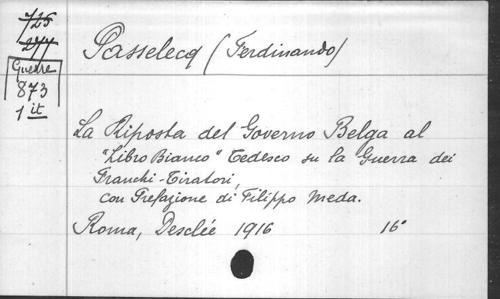 725
277
Guerre
873
1 it
Passelecq (Ferdinando)
La Riposta del Governo Belga al
"Libro Bianco" Tedesco su la Guerra dei
Franchi-Tiratori,
con Prefazione di Filippo Meda.
Roma, Desclée 1916 16°